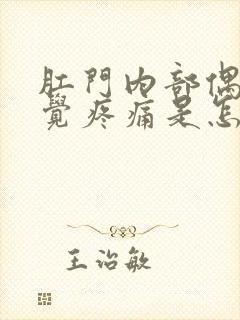 肛門內部偶
覺疼痛是怎
王治敏